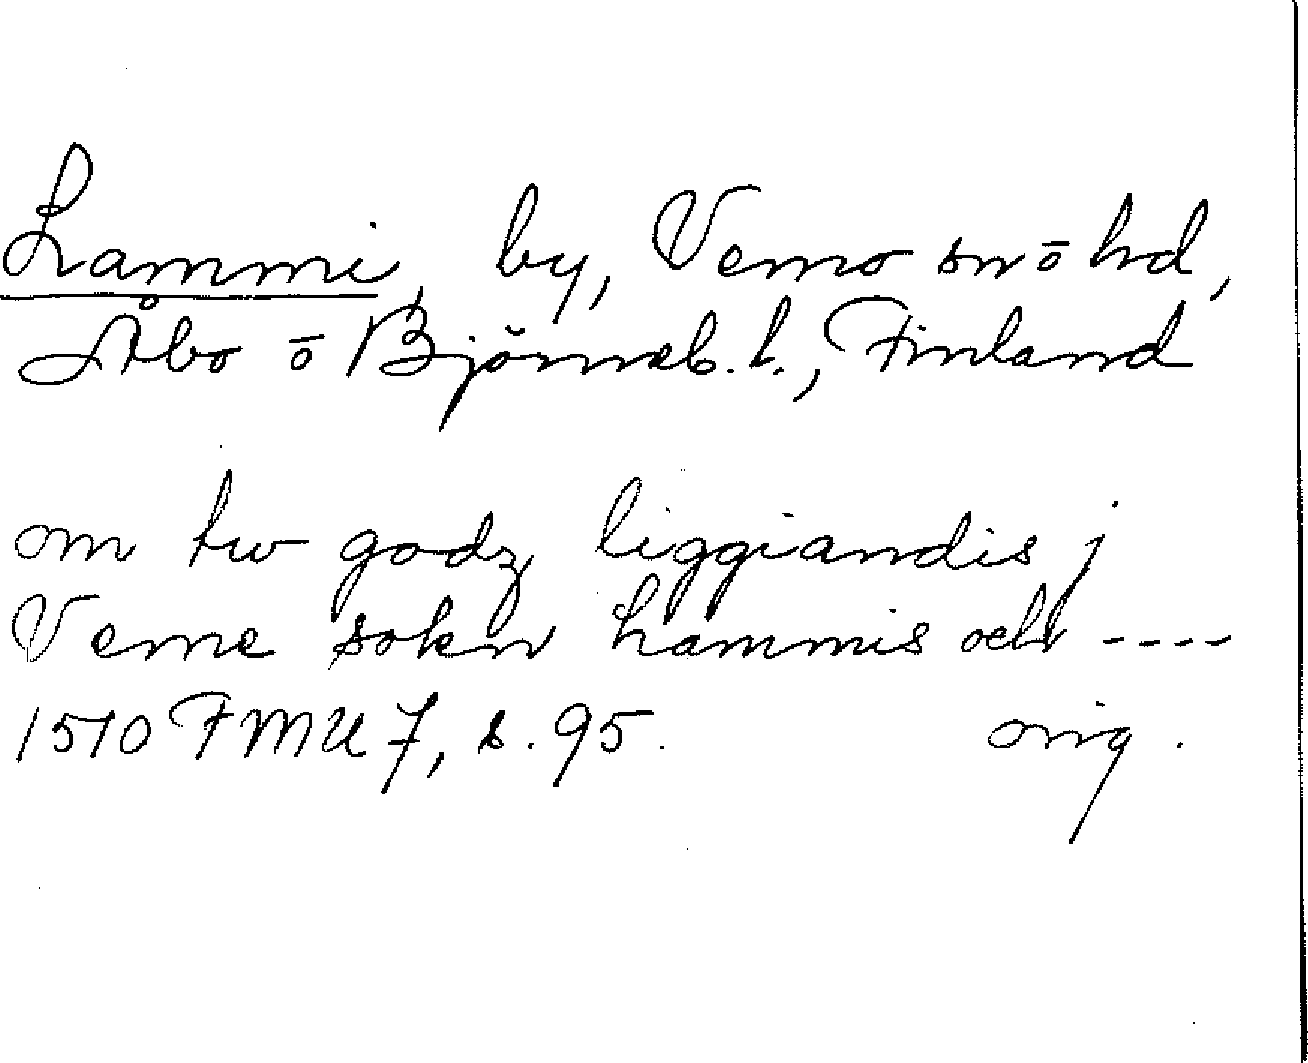 Lammi, by, Vemo sn ō hd,
Åbo ō Björneb. l., Finland
om tw godz liggiandis j
Veme sokn Lammis och ----
1510 FMU 7, s. 95. orig.